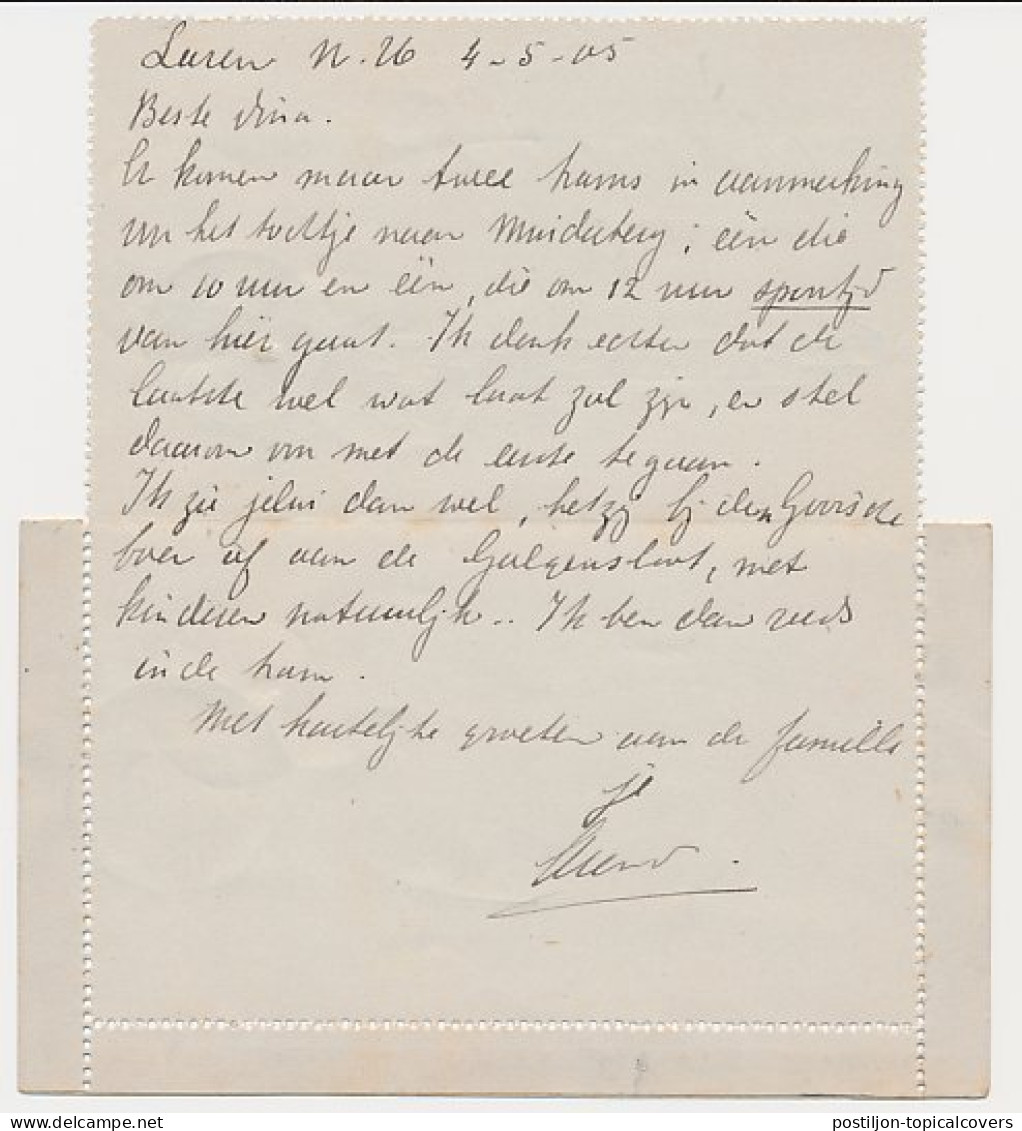 Laren N. 26 4-5-05
Beste Dina.
Er komen maar twee trams in aanmerking
om het tochtje naar Muiderberg; één die
om 10 uur en één, die om 12 uur spoortijd
van hier gaat. Ik denk echter dat de
laatste wel wat laat zal zijn, en stel
daarom om met de eerste te gaan.
Ik zie jelui dan wel, hetzij bij den Gooische
boer of aan de Galgensloot, met
kinderen natuurlijk.. Ik ben dan reeds
in de tram.
Met hartelijke groeten aan de familie
je
postiljon-topicalcovers